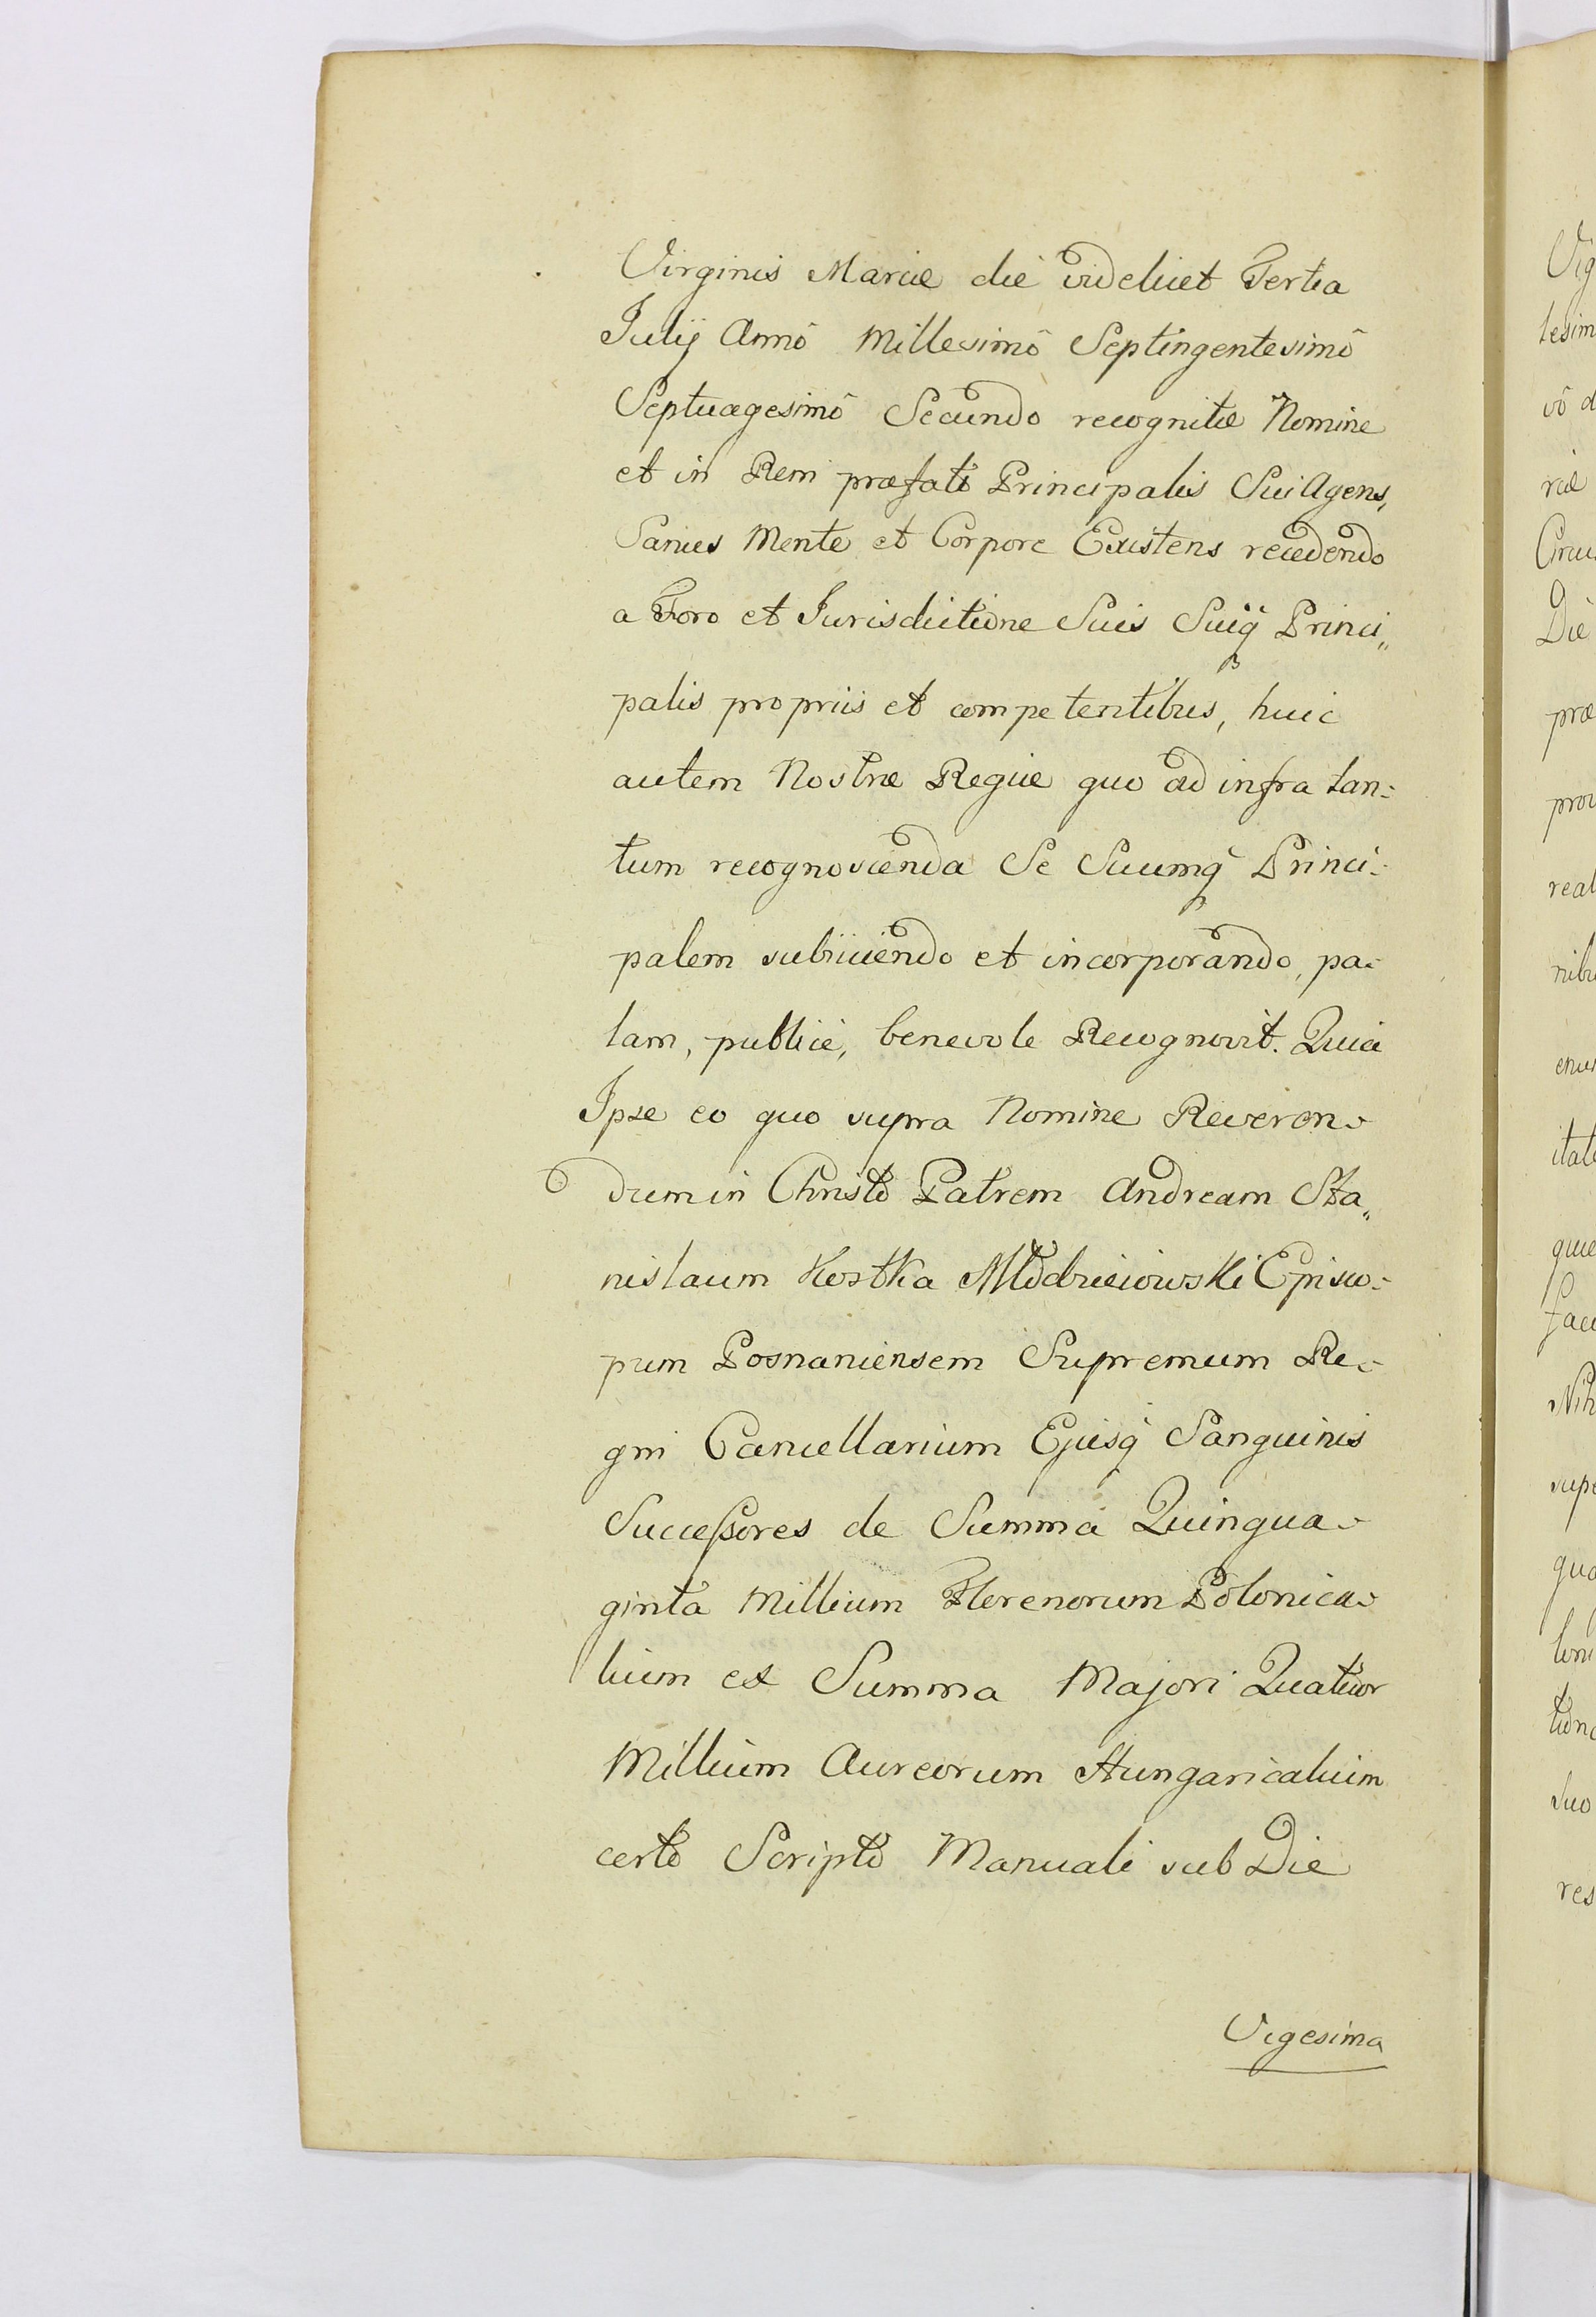 Virginis Mariæ die videlicet Tertia
Julij Annô Millesimô Septingentesimô
Septuagesimô Secundo recognitæ Nomine
et in Rem præfati Principalis Sui Agens,
Sanus Mente et Corpore Existens recedendo
a Foro et Jurisdictione Suis Suiq Princi„
palis propriis et competentibus, huic
autem Nostræ Regiæ quo ad infra tan:
tum recognoscenda Se Suumq Princi:
palem subiiciendo et incorporando, pa:
lam, publice, benevole Recognovit. Quia
Ipse eo quo supra Nomine Reveren:
dum in Christo Patrem Andream Sta„
nislaum Kostka Młodzieiowski Episco:
pum Posnaniensem Supremum Re:
gni Cancellarium Ejusq Sanguinis
Successores de Summa Quinqua:
ginta Millium Florenorum Polonica:
lium ex Summa Majori Quatuor
Millium Aureorum Hungaricalium
certo Scripto Manuali sub Die
Vigesima
Vig
tesim
vô d
riæ
Die
præ
real
itat
quæ
supe
quo
suo
res